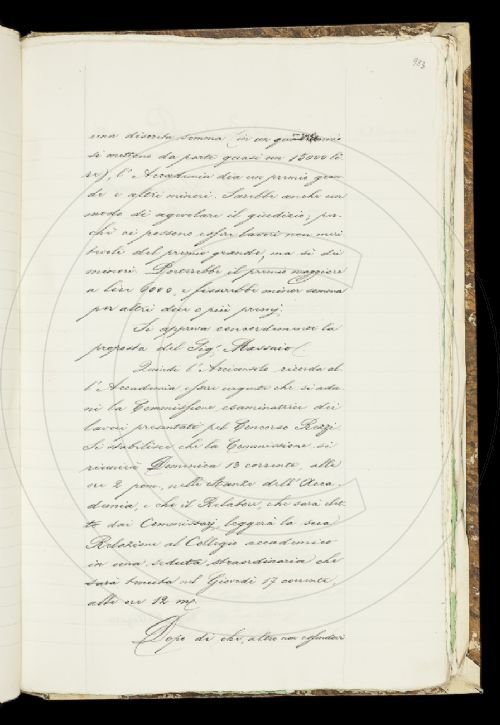 983
una discreta somma (in un
si mettono da parte quasi un 15000 li
re), l'Accademia dia un premio gran
de e altri minori. Sarebbe anche un
modo di agevolare il giudizio, per-
chè vi possono essere lavori non meri
tevoli del premio grande, ma sì di
minori. Porterebbe il premio maggiore
a lire 9000, e fisserebbe minor somma
per altri due o più premj.
Si approva concordemente la
proposta del Sigr. Massaio.
Quindi l'Arciconsolo ricorda al
l'Accademia essere urgente che si adu
ni la Commissione esaminatrice dei
lavori presentati pel Concorso Rezzi.
Si stabilisce che la Commissione si
riunirà Domenica 13 corrente, alle
ore 2 pom., nelle Stanze dell'Acca
demia, e che il Relatore, che sarà elet
to dai Commissarj, leggerà la sua
Relazione al Collegio accademico
in una seduta straordinaria che
sarà tenuta nel Giovedì 17 corrente,
alle ore 12 m.
Dopo di che, altro non essendovi